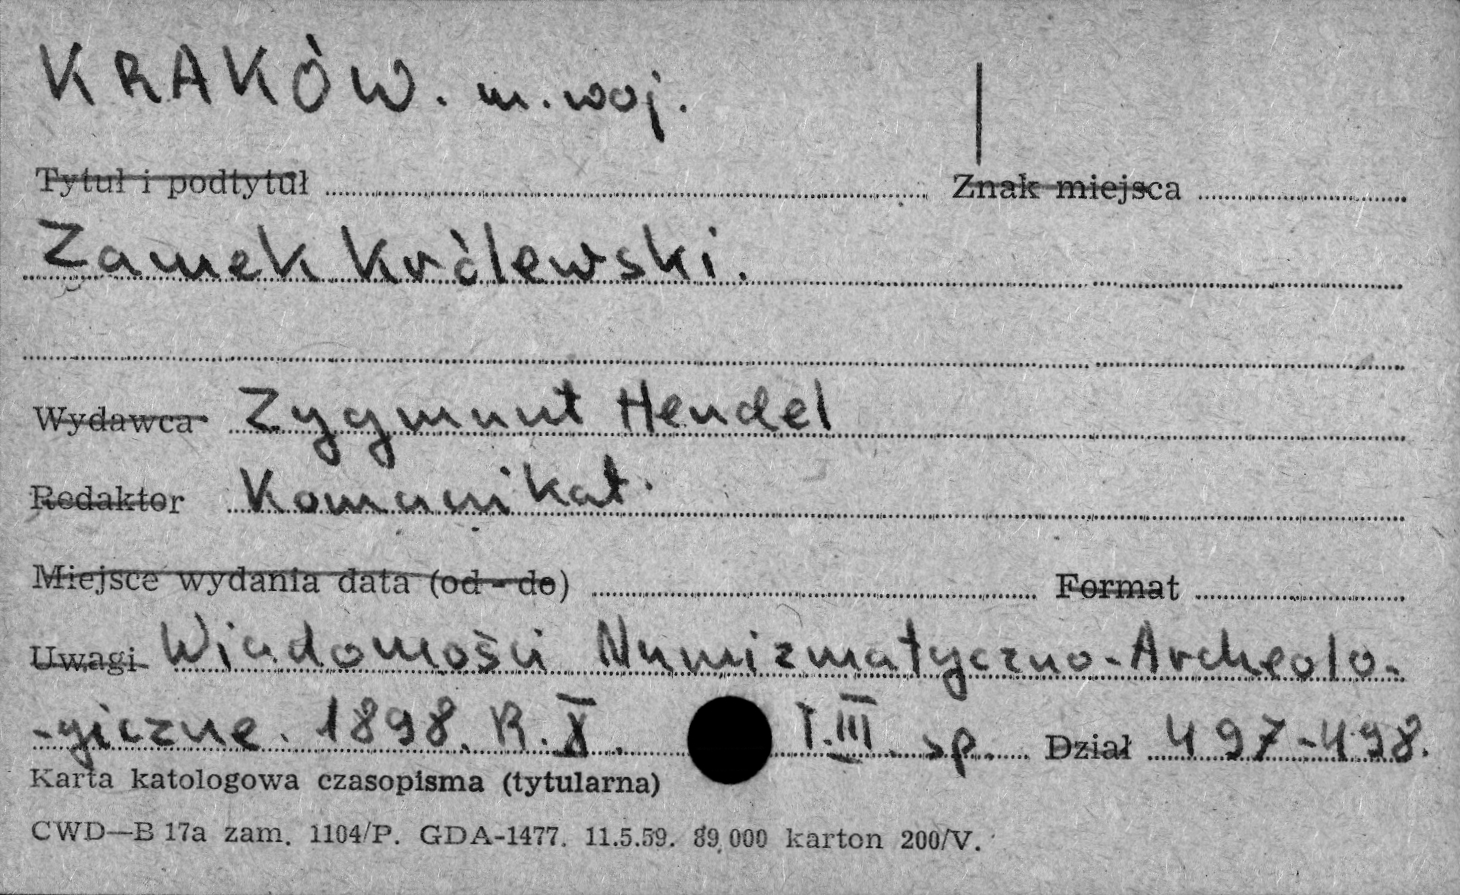 KRAKÓW. m. woj.
Tytuł i podtytuł Znak miejsca
Zamek Królewski.
Wydawca Zygmunt Hendel
Redaktor Komunikat.
Miejsce wydania data (od - do) Format
Uwagi Wiadomości Numizmatyczno-Archeolo-
-giczne. 1898. R. X. T. III. sp. Dział 497-498.
Karta katologowa czasopisma (tytularna)
CWD—B 17a zam. 1104/P. GDA-1477. 11.5.59. 89.000 karton 200/V.